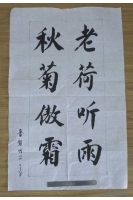 老荷听雨
秋菊傲霜